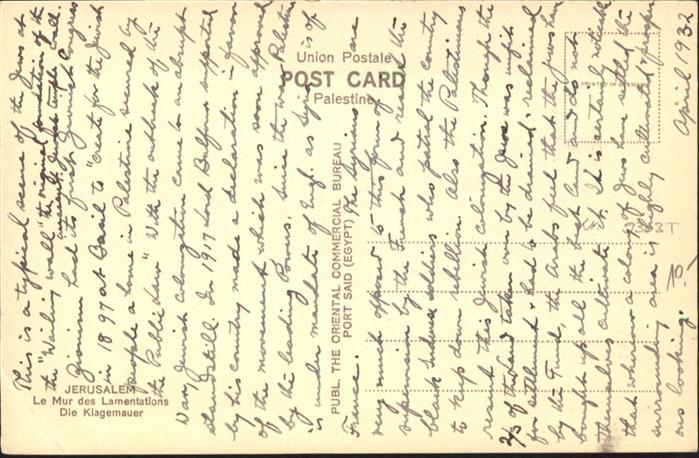 Union Postale
POST CARD
Palestine
PUBL. THE ORIENTAL COMMERCIAL BUREAU
PORT SAID (EGYPT)
JERUSALEM
Le Mur des Lamentations
Die Klagemauer
This is a typical scene of the Jews at
the "Wailing wall" the original foundation of the
ancient Jewish temple.
Zionism had its first Jewish Congress
in 1897 at Basil to "create for the Jewish
people a home in Palestine secured by
the Public Law" With the outbreak of the
War, Jewish colonization came to an abrupt
standstill. In 1917 Lord Balfour supported
by his country made a declaration in favor
of the movement which was soon approved
by the leading Powers. Since the war Palestine
is under mandate of Engl. as Syria is of
France. The Syrians are
very much opposed to this form of
supervision by the French and resent the
black soldiers who patrol the country
to keep down rebellion. Also the Palestinians
resent this Jewish colonization. Though the
2/3 of the land taken over by the Jews was unfit
for settlement & had to be drained & reclaimed
by the Fund, the Arabs feel that the Jews have
bought up all the best land and do not
themselves cultivate it. It is certainly noticeable
that wherever a colony of Jews have settled the
surrounding area is highly cultivated & prosper-
ous looking.
April 1932
10/